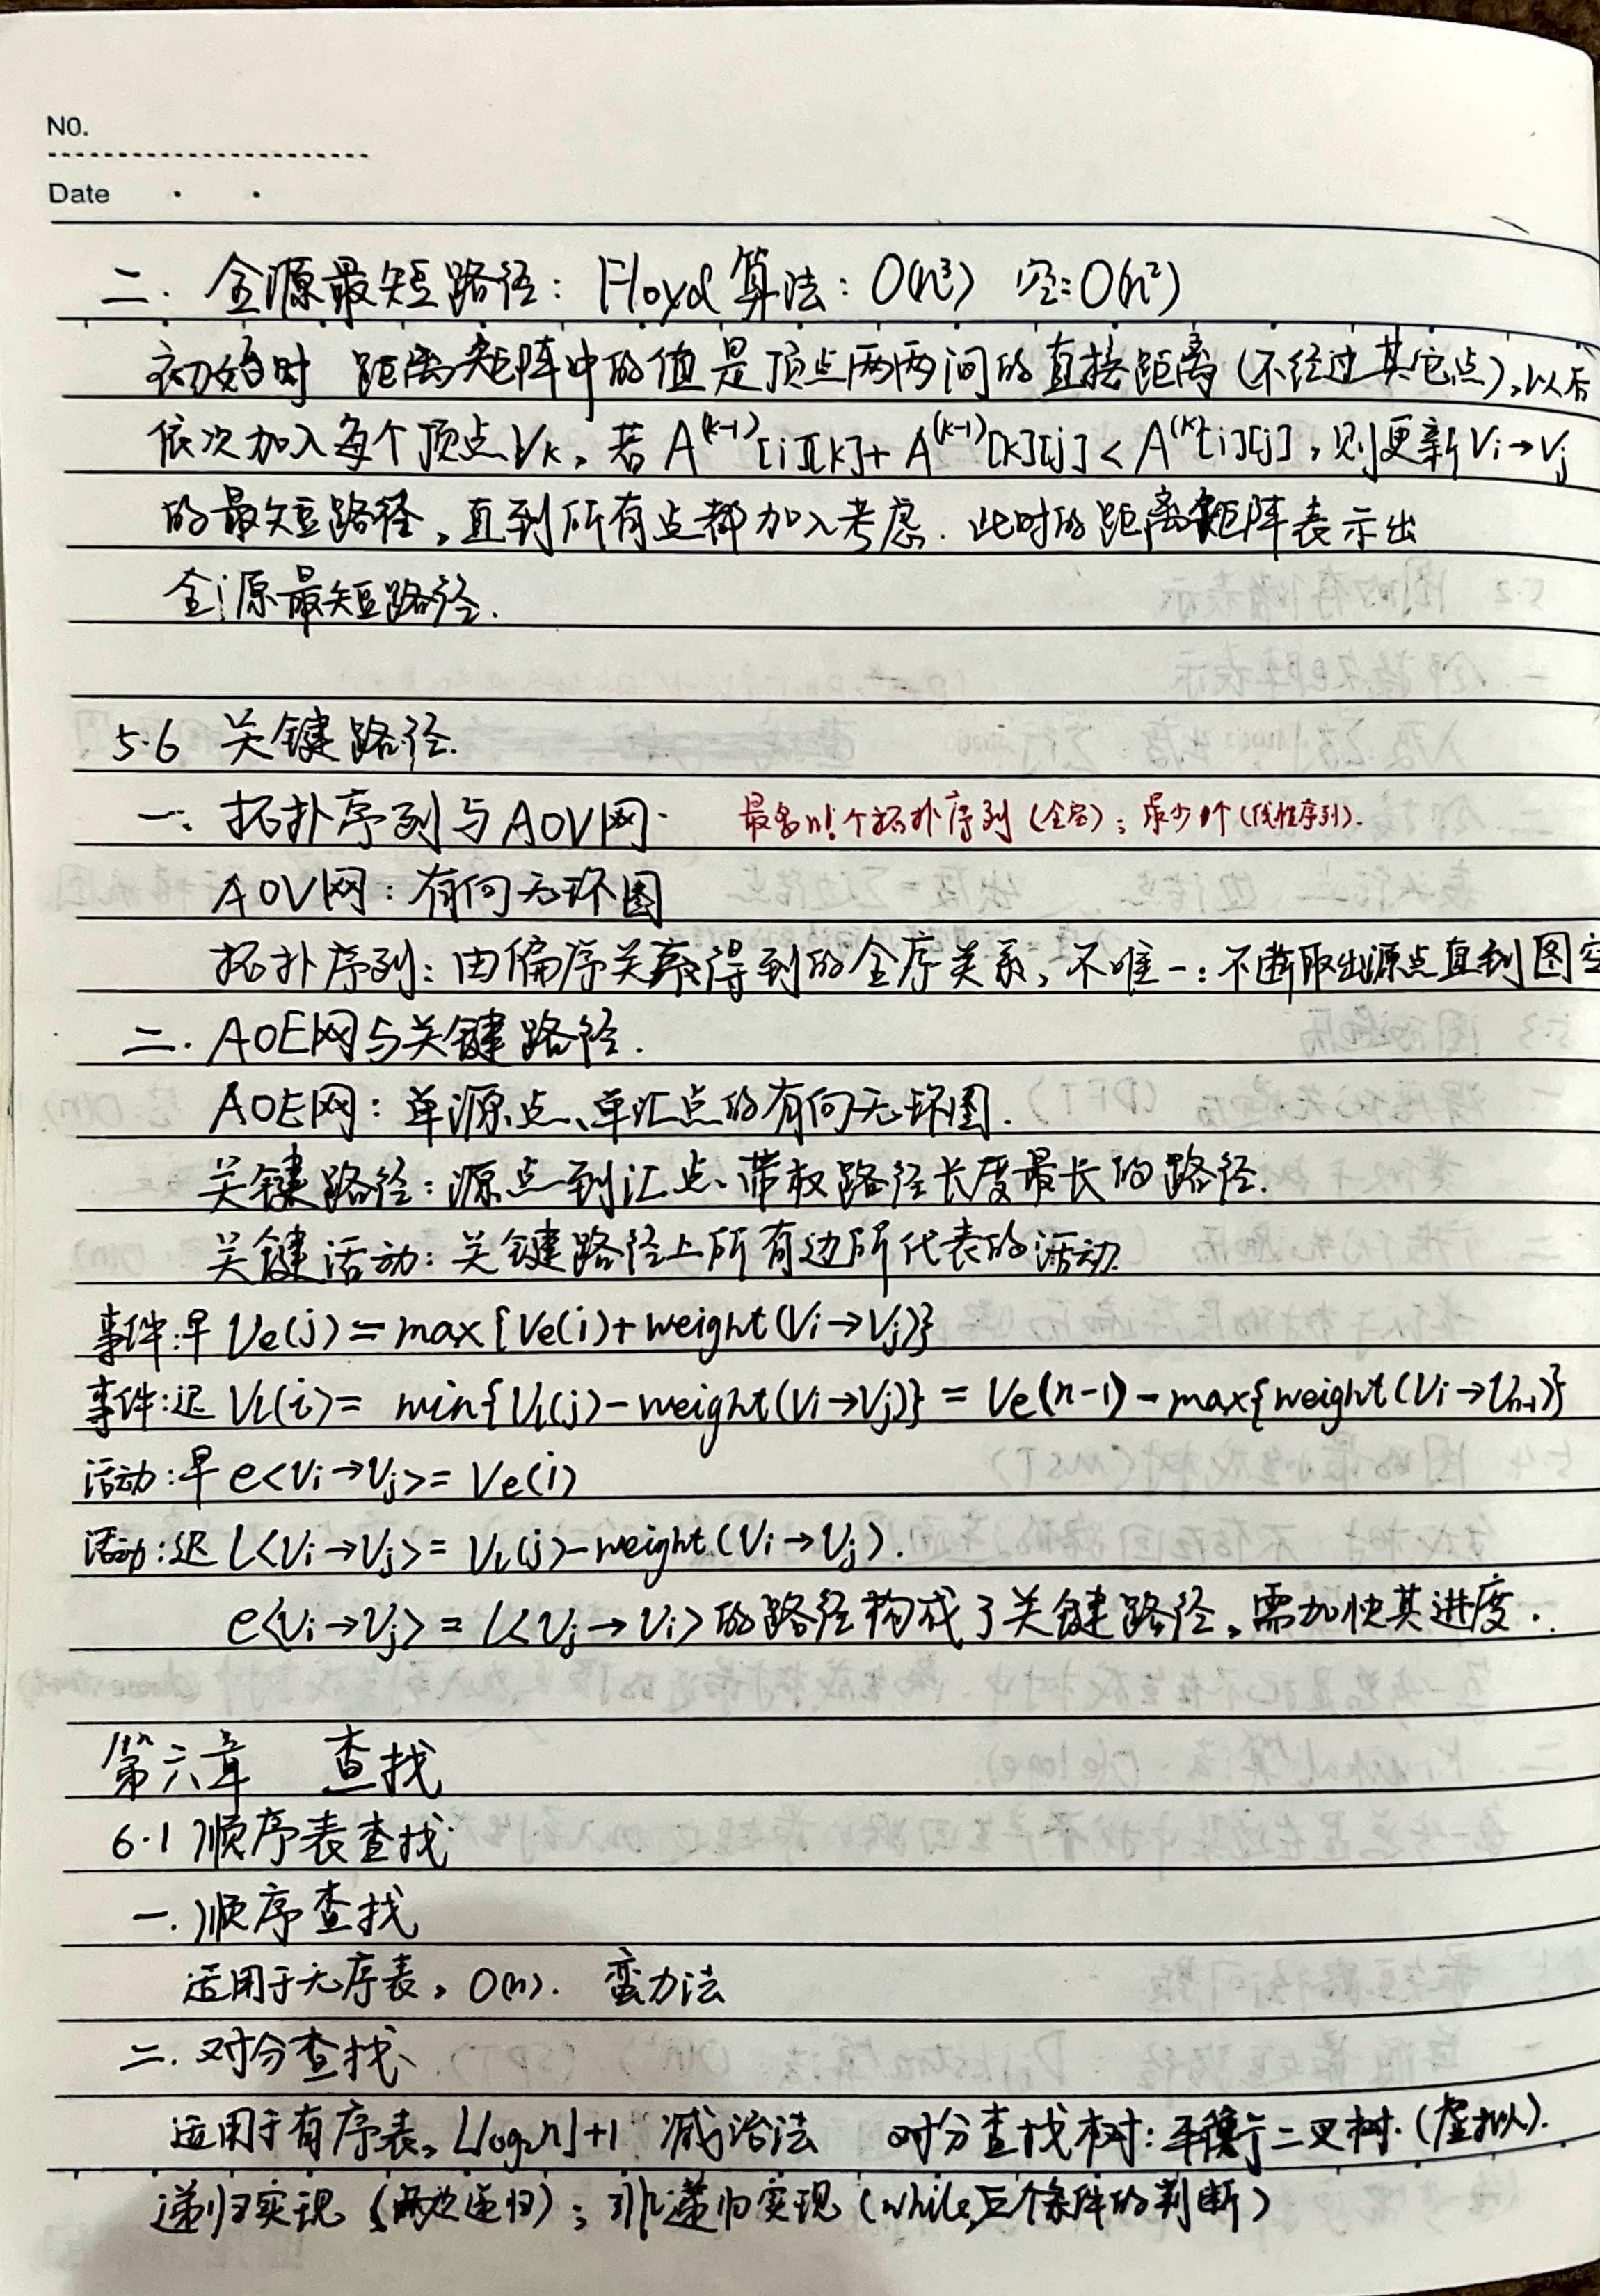 NO.
Date
二. 全源最短路径: Floyd算法: O(n³) 空:O(n²)
初始时 距离矩阵中的值是顶点两两间的直接距离(不经过其它点),以后
依次加入每个顶点Vk,若A^(k-1)[i][k]+A^(k-1)[k][j]<A^(k)[i][j],则更新Vi→Vj
的最短路径,直到所有点都加入考虑.此时的距离矩阵表示出
全源最短路径.
5.6 关键路径.
一. 拓扑序列与AOV网. 最多n!个拓扑序列(全空);最少1个(线性序列).
AOV网:有向无环图
拓扑序列:由偏序关系得到的全序关系,不唯一:不断取出源点直到图空
二. AOE网与关键路径.
AOE网:单源点、单汇点的有向无环图.
关键路径:源点到汇点、带权路径长度最长的路径.
关键活动:关键路径上所有边所代表的活动.
事件:早 Ve(j)=max{Ve(i)+weight(Vi→Vj)}
事件:迟 Vl(i)= min{Vl(j)-weight(Vi→Vj)}=Ve(n-1)-max{weight(Vi→Vn-1)}
活动:早 e<Vi→Vj>=Ve(i)
活动:迟 l<Vi→Vj>=Vl(j)-weight(Vi→Vj).
e<Vi→Vj>=l<Vj→Vi>的路径构成了关键路径,需加快其进度.
第六章 查找
6.1 顺序表查找
一.顺序查找
适用于无序表,O(n). 蛮力法
二.对分查找
适用于有序表,⌊log₂n⌋+1 减治法 对分查找树:平衡二叉树.(虚拟).
递归实现(递归);非递归实现(while,三个条件的判断)